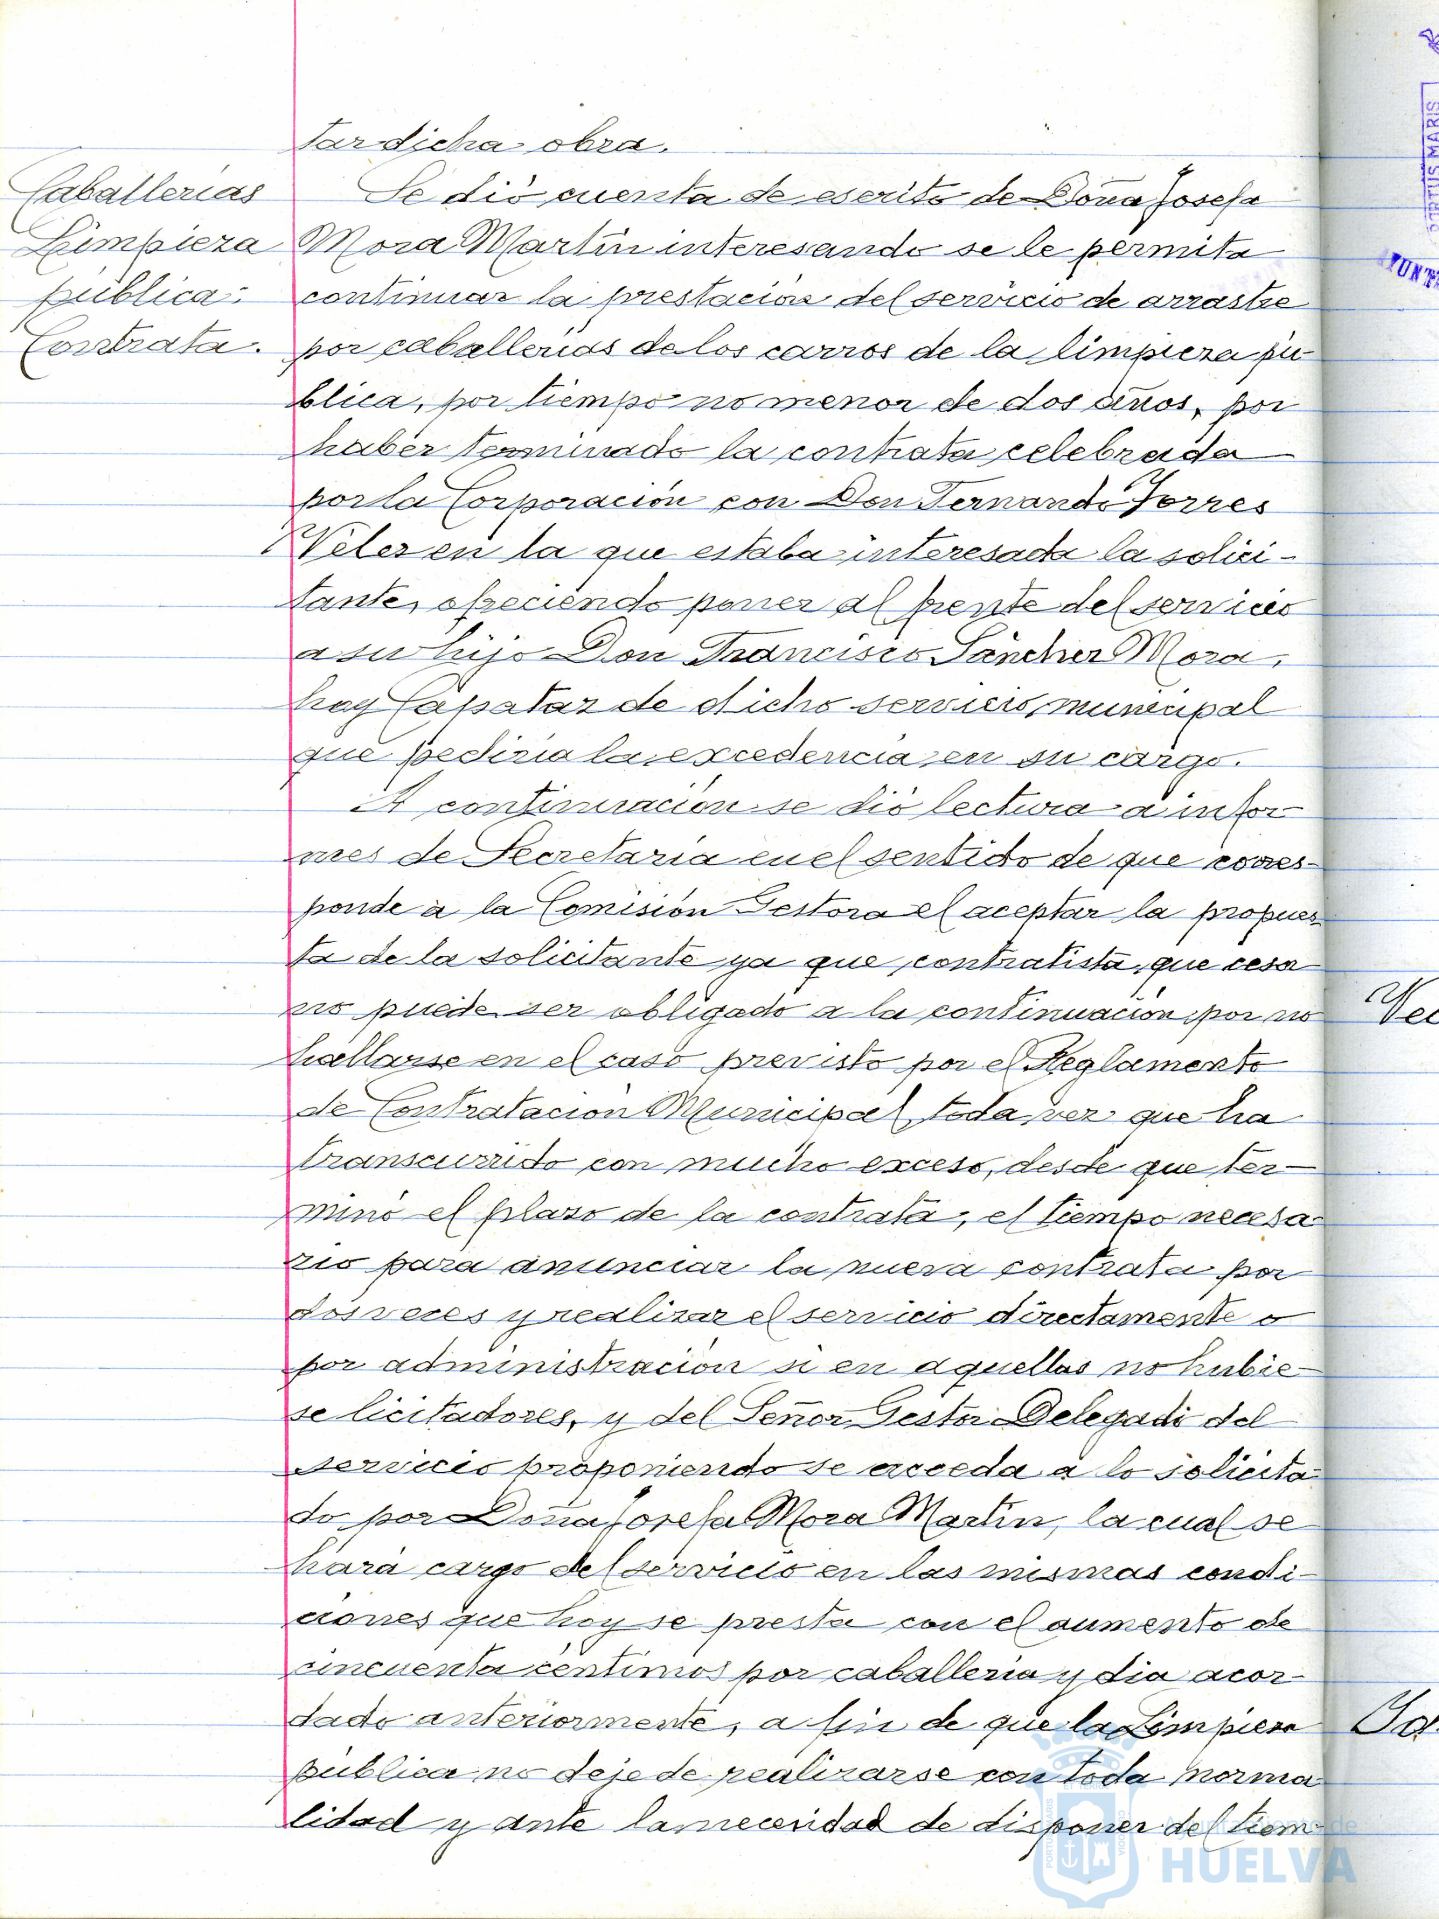 tar dicha obra.
Caballerías
Limpieza
pública:
Contrata.
Se dió cuenta de escrito de Doña Josefa
Mora Martín interesando se le permita
continuar la prestación del servicio de arrastre
por caballerías de los carros de la limpieza pú-
blica, por tiempo no menor de dos años, por
haber terminado la contrata celebrada
por la Corporación con Don Fernando Torres
Velez en la que estaba interesada la solici-
tante, ofreciendo poner al frente del servicio
a su hijo Don Francisco Sánchez Mora,
hoy Capataz de dicho servicio municipal
que pediría la excedencia en su cargo.
A continuación se dió lectura a infor-
mes de Secretaría en el sentido de que corres-
ponde a la Comisión Gestora el aceptar la propues-
ta de la solicitante ya que contratista que cesa
no puede ser obligado a la continuación por no
hallarse en el caso previsto por el Reglamento
de Contratación Municipal, toda vez que ha
transcurrido con mucho exceso, desde que ter-
minó el plazo de la contrata, el tiempo necesa-
rio para anunciar la nueva contrata por
dos veces y realizar el servicio directamente o
por administración si en aquellas no hubie-
se licitadores, y del Señor Gestor Delegado del
servicio proponiendo se acceda a lo solicita-
do por Doña Josefa Mora Martín, la cual se
hará cargo del servicio en las mismas condi-
ciones que hoy se presta con el aumento de
cincuenta céntimos por caballería y día acor-
dado anteriormente, a fin de que la Limpieza
pública no deje de realizarse con toda norma-
lidad y ante la necesidad de disponer del tiem-
PORTUS MARIS
Ayuntamiento de
HUELVA